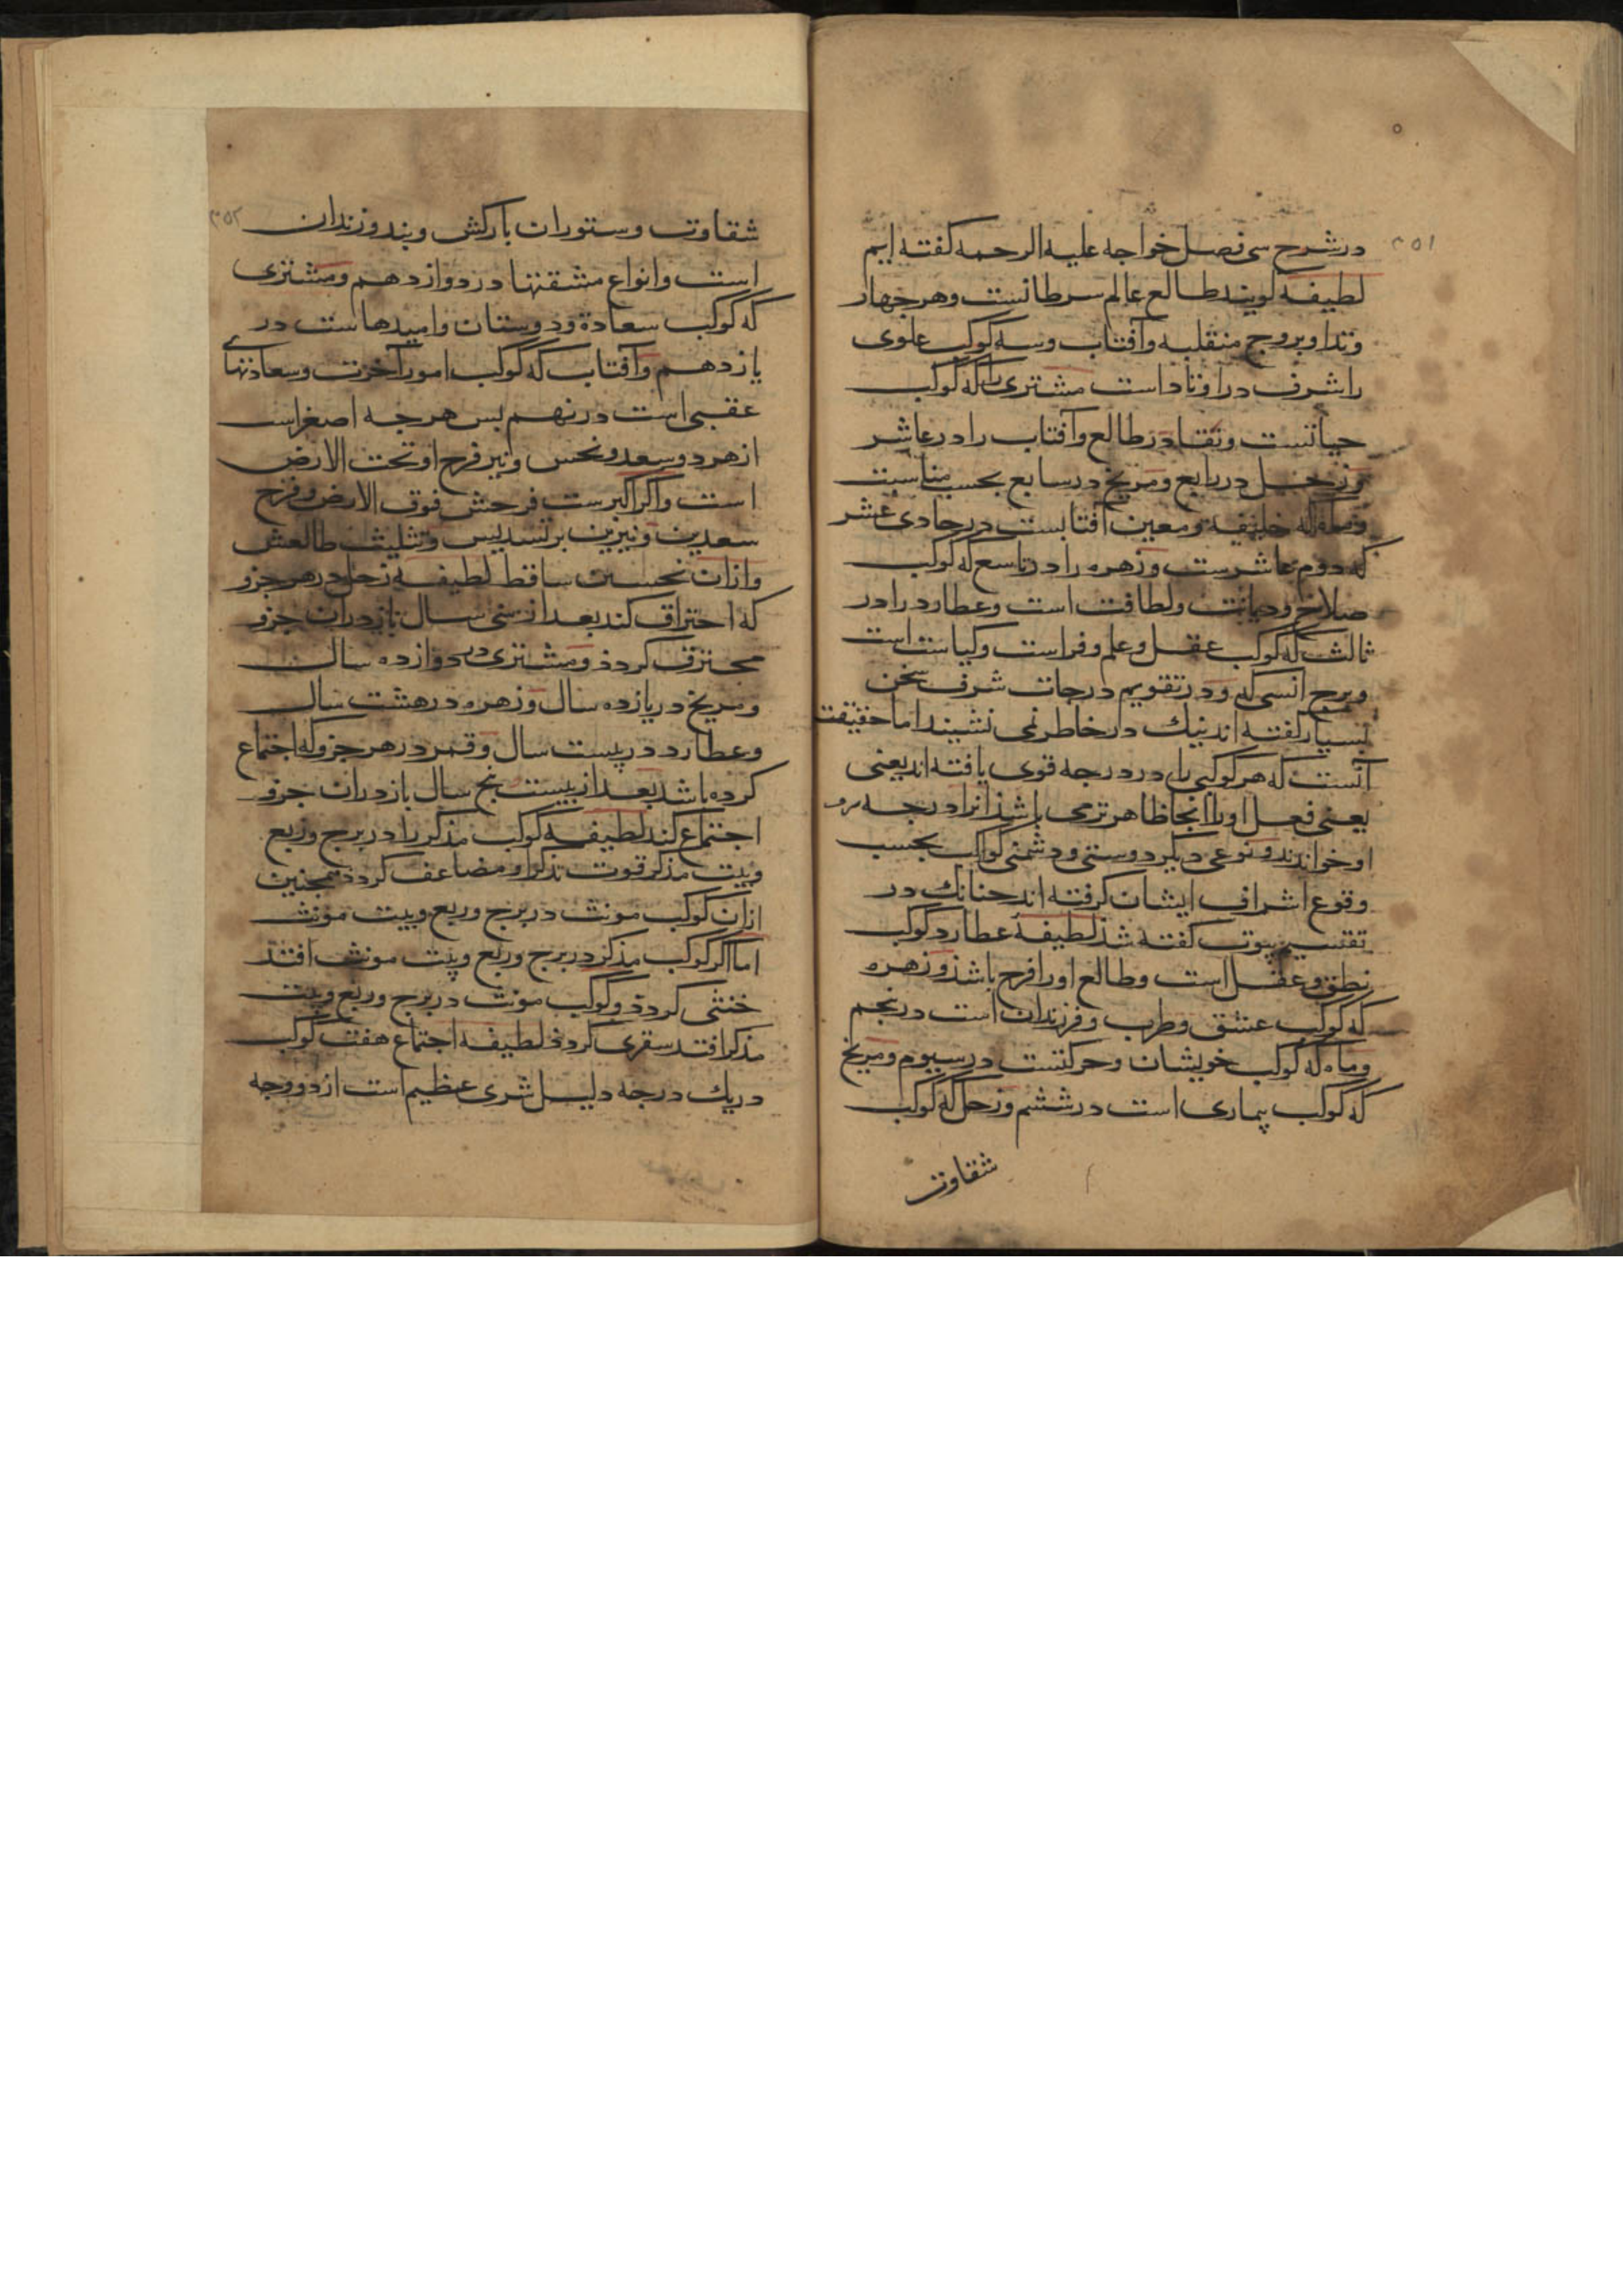 ۳۵۱
در شرح سی فصل خواجه علیه الرحمه کفته ایم
لطیفه کویند طالع عالم سرطانست وهر چهار
وتد او بروج منقلبه وآفتاب وسه کوکب علوی
را شرف در اوتاد است مشتری را که کوکب
حیاتست وبقا در طالع وآفتاب را در عاشر
وزحل در رابع ومریخ در سابع بحسب مناسبت
وماه که خلیفه ومعین آفتابست در حادی عشر
که دوم عاشرست وزهره را در تاسع که کوکب
صلاح ودیانت ولطافت است وعطارد را در
ثالث که کوکب عقل وعلم وفراست وکیاست است
وبرج انسی که ود رتقویم درجات شرف سخن
بسیار کفته اند نیك در خاطر نمی نشیند اما حقیقت
آنست که هر کوکبی را در درجه قوی یافته اند یعنی
یعنی فعل او را انجا ظاهرتر می باشذ انرا درجه
او خواندند ونوعی دیکر دوستی ودشمنی کواکب بحسب
وقوع اشراف ایشان کرفته اند چنانك در
تقسیم بیوت کفته شذ لطیفه عطارد کوکب
نطق وعقل است وطالع او را فرح باشذ وزهره
که کوکب عشق وطرب وفرزندان است در پنجم
وماه که کوکب خویشان وحرکتست در سیوم ومریخ
که کوکب بیماری است در ششم وزحل که کوکب
شقاوت
۳۵۲
شقاوت وستوران بارکش وبند وزندان
است وانواع مشقتها در دوازدهم ومشتری
که کوکب سعادة ودوستان وامیدهاست در
یازدهم وآفتاب که کوکب امور آخرت وسعادتهاء
عقبی است در نهم بس هرچه اصغر است
از هر دو سعد ونحس ونیر فرح او تحت الارض
است واکر اکبرست فرحش فوق الارض وفرح
سعدین ونیرین بر تسدیس وتثلیث طالعش
وازان نحسین ساقط لطیفه زحل در هر جزو
که احتراق کند بعد از سی سال باز در ان جزو
محترق کردذ ومشتری در دوازده سال
ومریخ در یازده سال وزهره در هشت سال
وعطارد در بیست سال وقمر در هر جزو که اجتماع
کرده باشد بعد از بیست پنج سال باز در ان جزو
اجتماع کند لطیفه کوکب مذکر را در برج وربع
وبیت مذکر قوت تذکر او مضاعف کردذ همچنین
ازان کوکب مونث در برج وربع وبیت مونث
اما اکر کوکب مذکر در برج وربع وبیت مونث افتد
خنثی کردذ وکوکب مونث در برج وربع وبیت
مذکر افتد سقری کردذ لطیفه اجتماع هفت کوکب
در یك درجه دلیل شری عظیم است از دو وجه